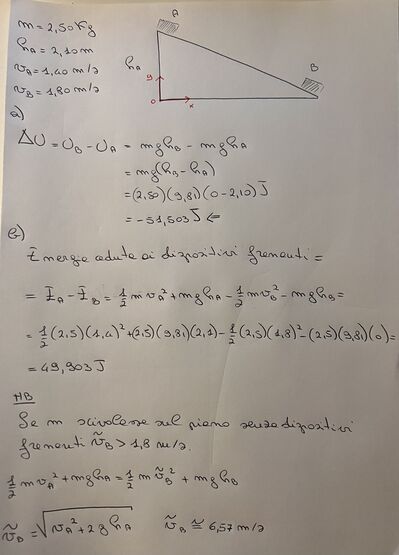 m = 2,50 Kg
hA = 2,10 m
vA = 1,40 m/s
vB = 1,80 m/s
A
hA
y
o
x
B
a)
ΔU = UB - UA = mghB - mghA
= mg(hB - hA)
= (2,50)(9,81)(0 - 2,10) J
= -51,503 J ⇐
b)
Energia ceduta ai dispositivi frenanti =
= EA - EB = 1/2 m vA² + mghA - 1/2 m vB² - mghB =
= 1/2 (2,5)(1,4)² + (2,5)(9,81)(2,1) - 1/2 (2,5)(1,8)² - (2,5)(9,81)(0) =
= 49,903 J
NB
Se m scivolasse sul piano senza dispositivi
frenanti ṽB > 1,8 m/s.
1/2 m vA² + mghA = 1/2 m ṽB² + mghB
ṽB = √(vA² + 2ghA) ṽB ≅ 6,57 m/s